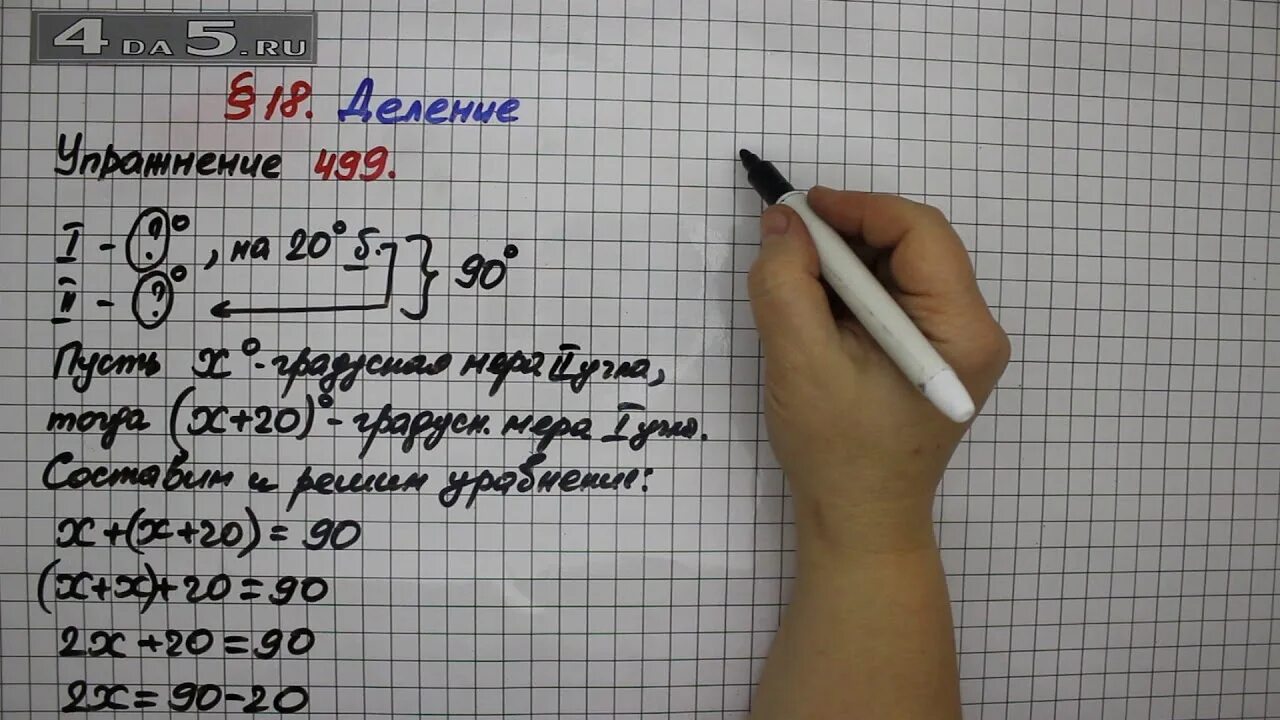 4DA5.RU
§ 18. Деление
Упражнение 499.
I - ?°, на 20° б.
II - ?°
} 90°
Пусть x° - градусная мера II угла,
тогда (x+20)° - градусн. мера I угла.
Составим и решим уравнение:
x+(x+20)=90
(x+x)+20=90
2x+20=90
2x=90-20